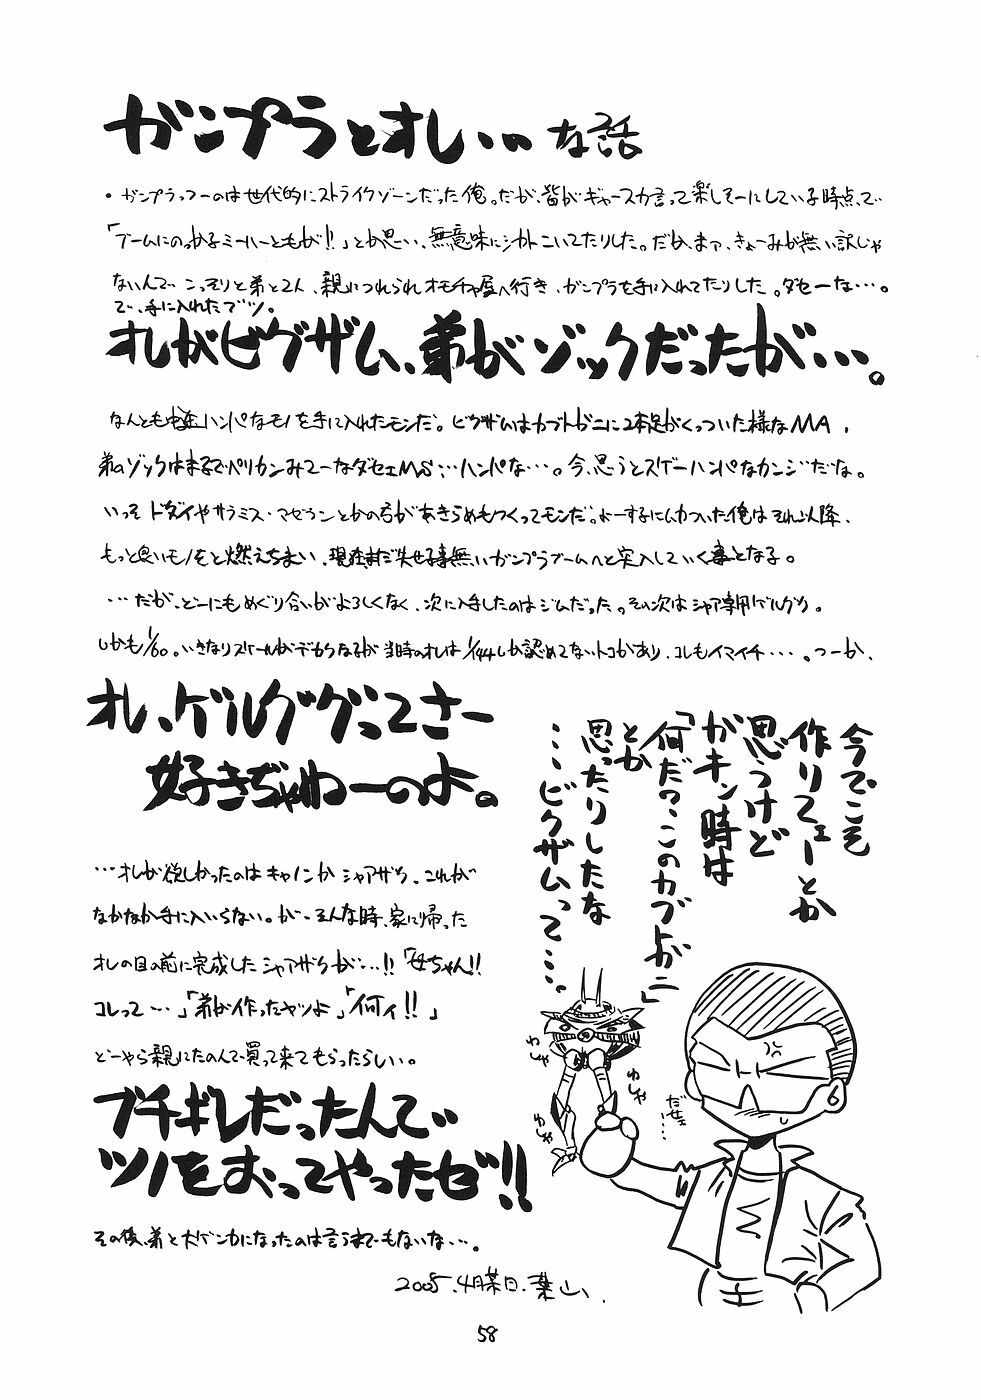 ガンプラとオレ… な話
・ガンプラっつーのは世代的にストライクゾーンだった俺。だが、皆がギャースカ言って楽しそーにしている時点で
「ブームにのっかるミーハーどもが!!」とか思い、無意味にシカトこいてたりした。だが、まァ、きょーみが無い訳じゃ
ないんでこっそりと弟と2人、親につれられオモチャ屋へ行き、ガンプラを手に入れてたりした。ダセーな…。
で、手に入れたブツ。
オレがビグザム、弟がゾックだったが…。
なんとも中途ハンパなモノを手に入れたモンだ。ビグザムはカブトガニに2本足がくっついた様なMA、
弟のゾックはまるでペリカンみてーなダセェMS…ハンパな…。今、思うとスゲーハンパなカンジだな。
いっそドダイやサラミス・マゼランとかの方があきらめもつくってモンだ。よーするにムカついた俺はそれ以降、
もっと良いモノをと燃えちまい、現在まだ失せる事無いガンプラブームへと突入していく事となる。
…だが、どーにもめぐり合いがよろしくなく、次に入手したのはジムだった。その次はシャア専用ゲルググ。
しかも1/60。いきなりスケールがデカくなるが当時のオレは1/144しか認めてないトコがあり、コレもイマイチ…。つーか、
オレ、ゲルググってさー
好きぢゃねーのよ。
…オレが欲しかったのはキャノンかシャアザク、これが
なかなか手に入いらない。が、そんな時、家に帰った
オレの目の前に完成したシャアザクが…!!「母ちゃん!!
コレって…」「弟が作ったヤツよ」「何ィ!!」
どーやら親にたのんで買って来てもらったらしい。
ブチギレだったんで
ツノをおってやったゼ!!
その後、弟と大ゲンカになったのは言うまでもないな…。
2005.4月某日.葉山.
今でこそ
作りフェーとか
思うけど
ガキン時は
「何だ?このカブトガニ」
とか
思ったりしたな
…ビグザムって…。
わしゃ
わしゃ
わしゃ
だせェ…
58